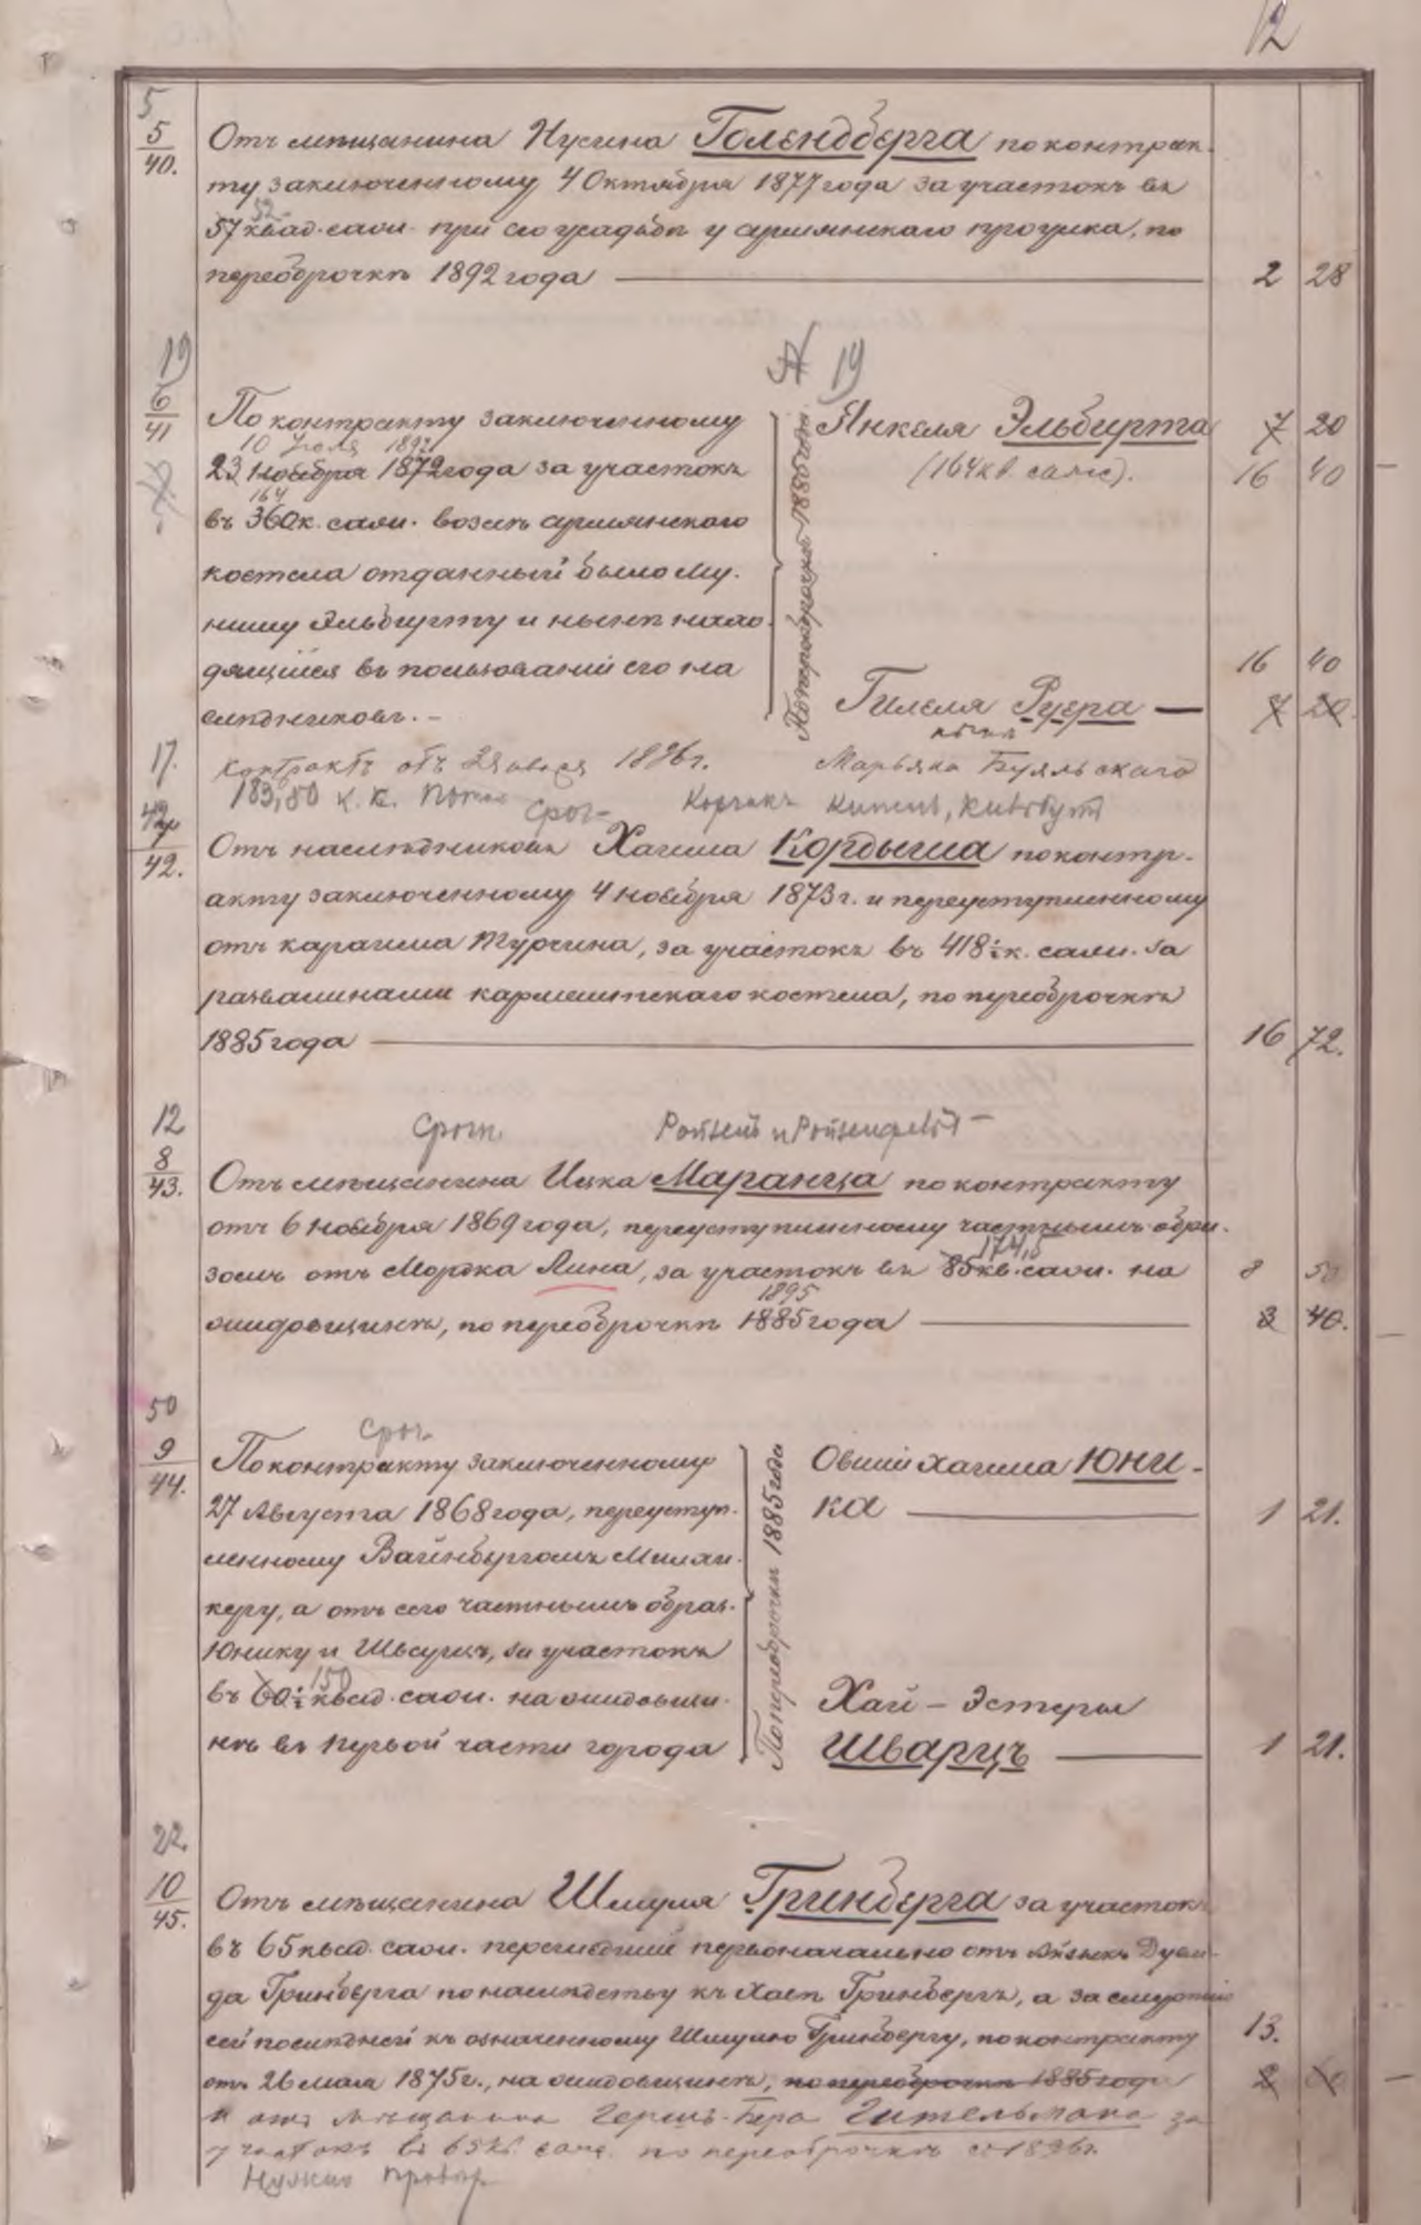 12
5
5/40.
Отъ мѣщанина Нусина Голендберга по контрак-
ту заключенному 4 Октября 1877 года за участокъ въ
52
57 квад. саж. при его усадьбѣ у армянскаго проулка, по
переоброчкѣ 1892 года — 2 28
19
19
6/41
По контракту заключенному
10 Іюля 1892
23 Ноября 1872 года за участокъ
164
въ 360 к. саж. возлѣ армянскаго
костела отданный было Му-
ншу Эльбирту и нынѣ нахо-
дящійся въ пользованіи его на-
слѣдниковъ. -
По переоброчкѣ 1885 года
Янкеля Эльбирта 7 20
(164 кв. саж.). 16 40
16 40
Гилеля Руера — 7 20
нынѣ
17.
Контрактъ отъ 1896 г. Марьяна Буяльскаго
183,80 к. с.
Сроч-
42.
Отъ наслѣдниковъ Хаима Кордыша по контр-
акту заключенному 4 ноября 1873 г. и переуступленному
отъ караима Турчина, за участокъ въ 418½ к. саж. за
развалинами кармелитскаго костела, по переоброчкѣ
1885 года — 16 72.
12
Сроч.
8/43.
Отъ мѣщанина Ицка Маранца по контракту
отъ 6 ноября 1869 года, переуступленному частнымъ обра-
174,5
зомъ отъ Мордка Лина, за участокъ въ 85 кв. саж. на 8 50
1895
жидовщинѣ, по переоброчкѣ 1885 года — 3 40.
50
Сроч.
9/44.
По контракту заключенному
27 Августа 1868 года, переуступ-
ленному Вайнбергомъ Милян-
керу, а отъ сего частнымъ образ.
Юнику и Шварцъ, за участокъ
150
въ 60½ квад. саж. на жидовщи-
нѣ въ первой части города
По переоброчкѣ 1885 года
Овшій Хаима Юни-
ка — 1 21.
Хаи - Эстеры
Шварцъ — 1 21.
22.
10/45.
Отъ мѣщанина Шмуля Гринберга за участокъ
въ 65 квад. саж. перешедшій первоначально отъ
да Гринберга по наслѣдству къ Хаѣ Гринбергъ, а за смертію
сей послѣдней къ означенному Шмулю Гринбергу, по контракту 13.
отъ 26 мая 1875 г., на жидовщинѣ, по переоброчкѣ 1885 года 2 60
и отъ мѣщанина Герша-Бера Гительмана за
участокъ въ 65 кв. саж. по переоброчкѣ съ 1896 г.
Нужно провѣр.